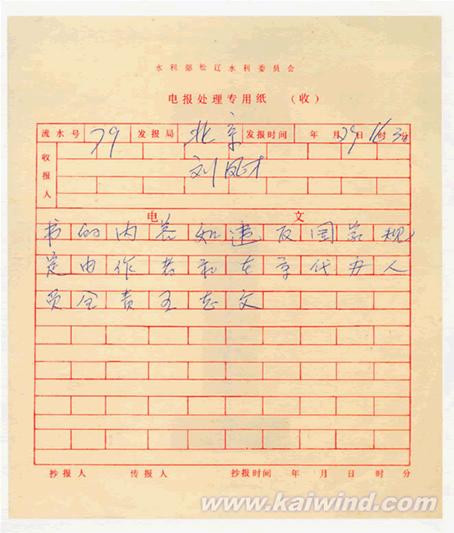 水利部松辽水利委员会
电报处理专用纸 （收）
流水号 79 发报局 北京 发报时间 年 月 29 日 16 时 3 分
收报人 刘凤才
电文
书的内容如违反国家规
定由作者和在京代办人
员全责王志文
抄报人 传报人 抄报时间 年 月 日 时 分
www.kaiwind.com